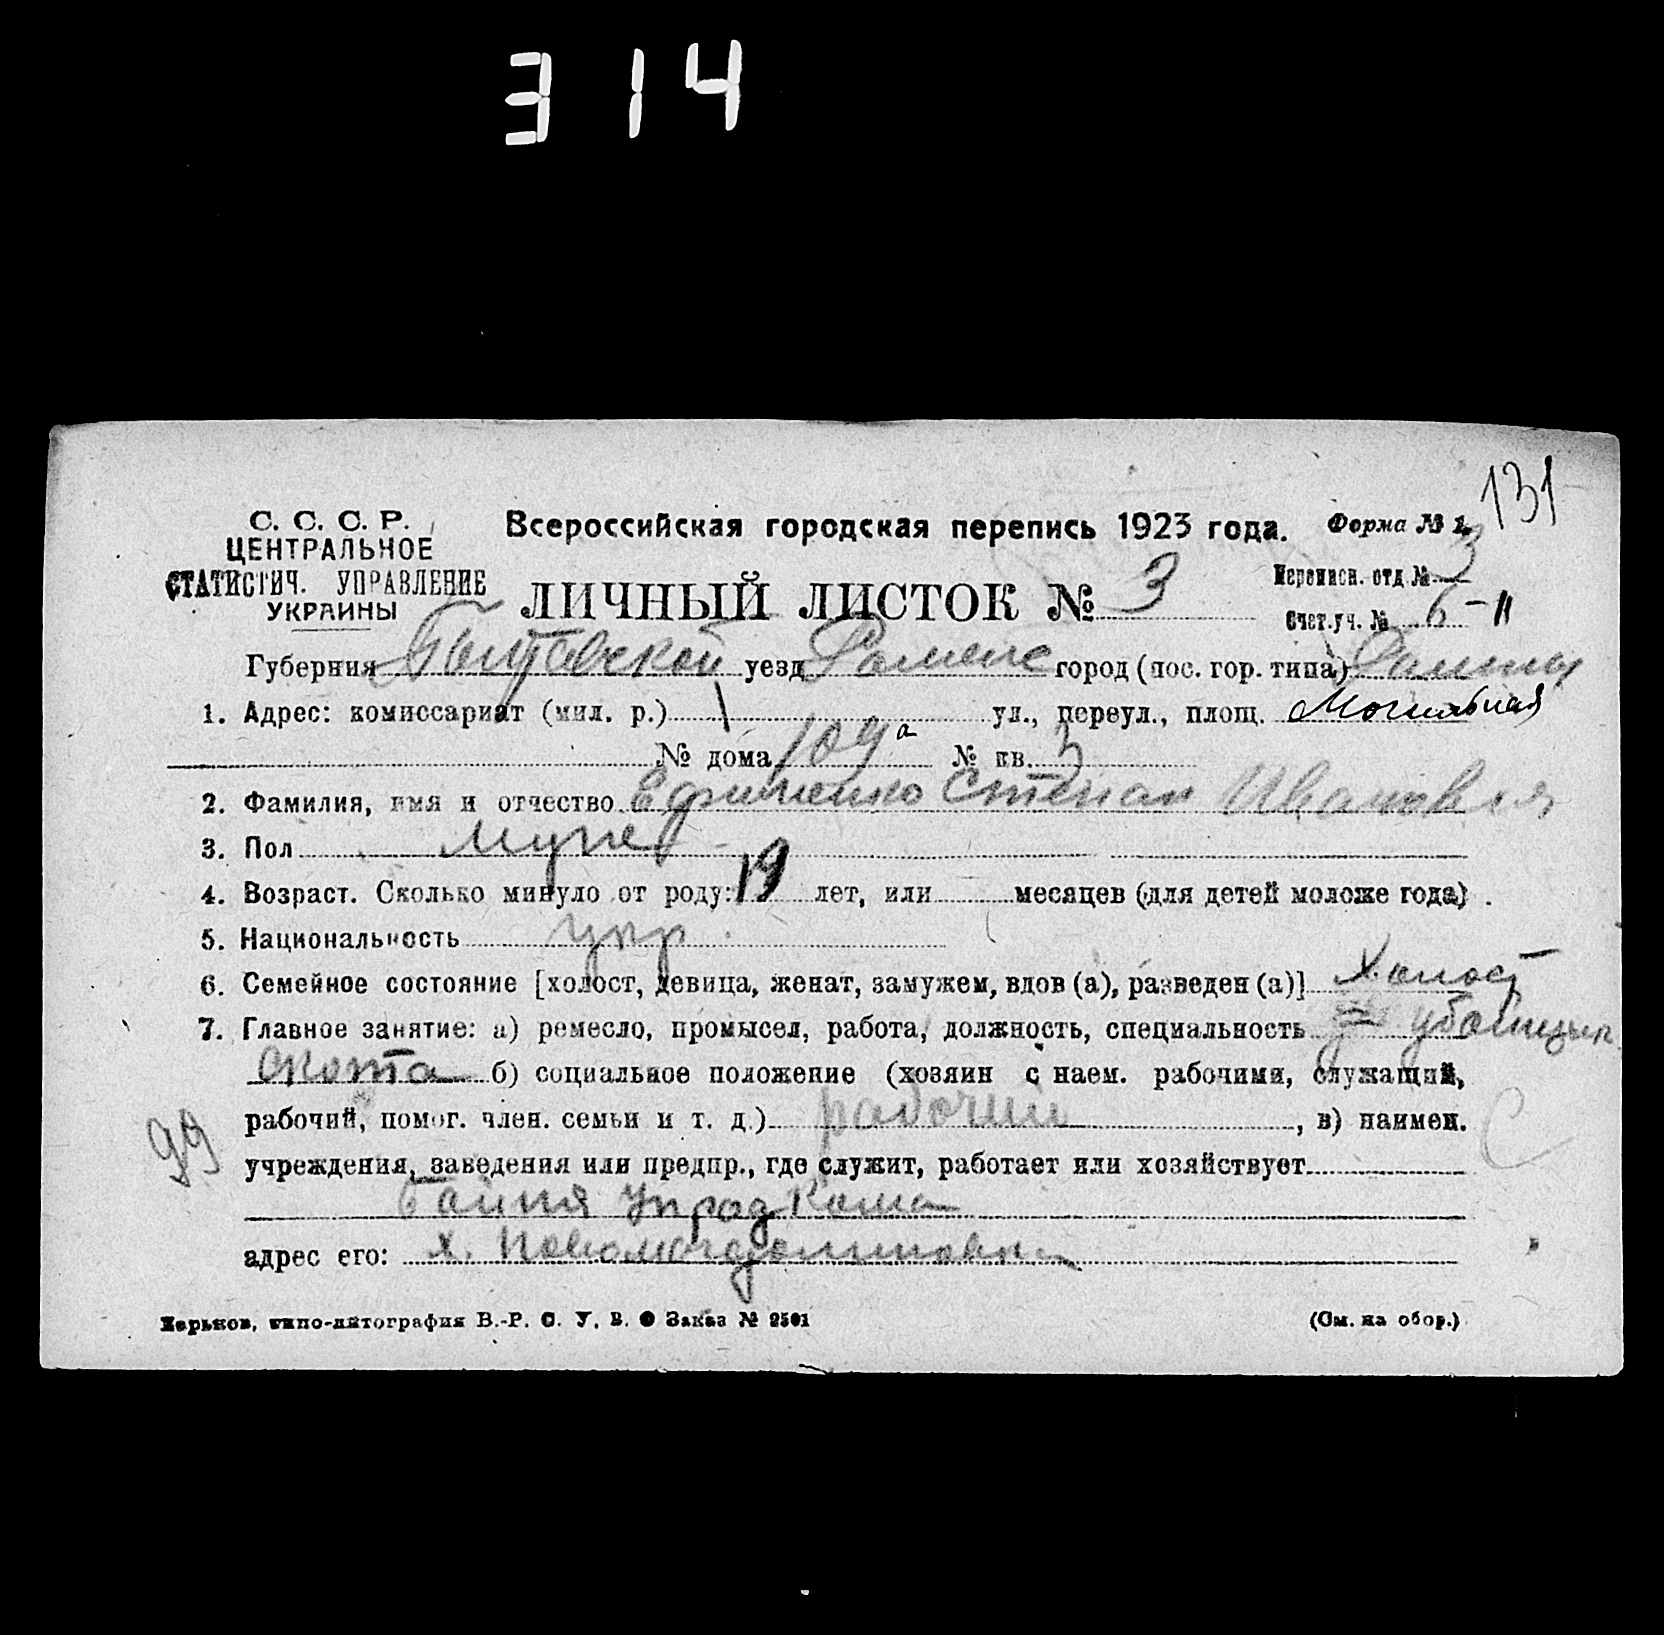 314
131
С. С. С. Р.
ЦЕНТРАЛЬНОЕ
СТАТИСТИЧ. УПРАВЛЕНИЕ
УКРАИНЫ
Всероссийская городская перепись 1923 года. Форма № 1.
ЛИЧНЫЙ ЛИСТОК № 3
Переписн. отд. № 3
Счет. уч. № 6-11
Губерния Полтавской уезд Роменс город (пос. гор. типа) Ромны
1. Адрес: комиссариат (мил. р.) 1 ул., переул., площ. Могильная
№ дома 109а № кв. 3
2. Фамилия, имя и отчество Ефименко Степан Иванович
3. Пол Муже
4. Возраст. Сколько минуло от роду: 19 лет, или месяцев (для детей моложе года).
5. Национальность укр.
6. Семейное состояние [холост, девица, женат, замужем, вдов (а), разведен (а)] Холост
7. Главное занятие: а) ремесло, промысел, работа, должность, специальность убойщик
скота б) социальное положение (хозяин с наем. рабочими, служащий,
рабочий, помог. член. семьи и т. д.) рабочий, в) наимен.
99
учреждения, заведения или предпр., где служит, работает или хозяйствует
Бойня
адрес его: х.
Харьков, типо-литография В.-Р. С. У. В. Заказ № 2501
(См. на обор.)